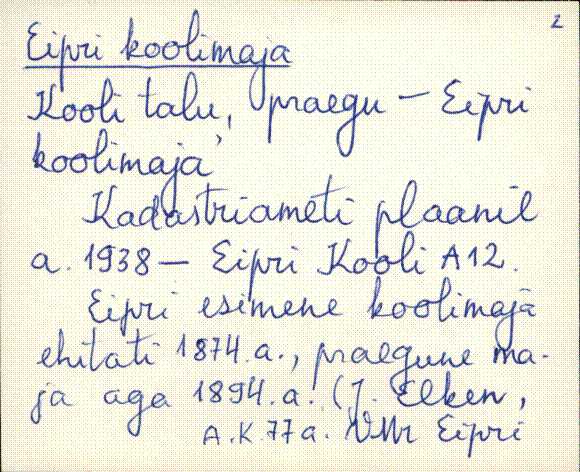 2
Eipri koolimaja
Kooli talu, praegu – Eipri
koolimaja
Kadastriameti plaanil
a. 1938 – Eipri Kooli A12.
Eipri esimene koolimaja
ehitati 1874.a., praegune ma-
ja aga 1894.a. (J. Elken,
A.K.77a. VMr Eipri